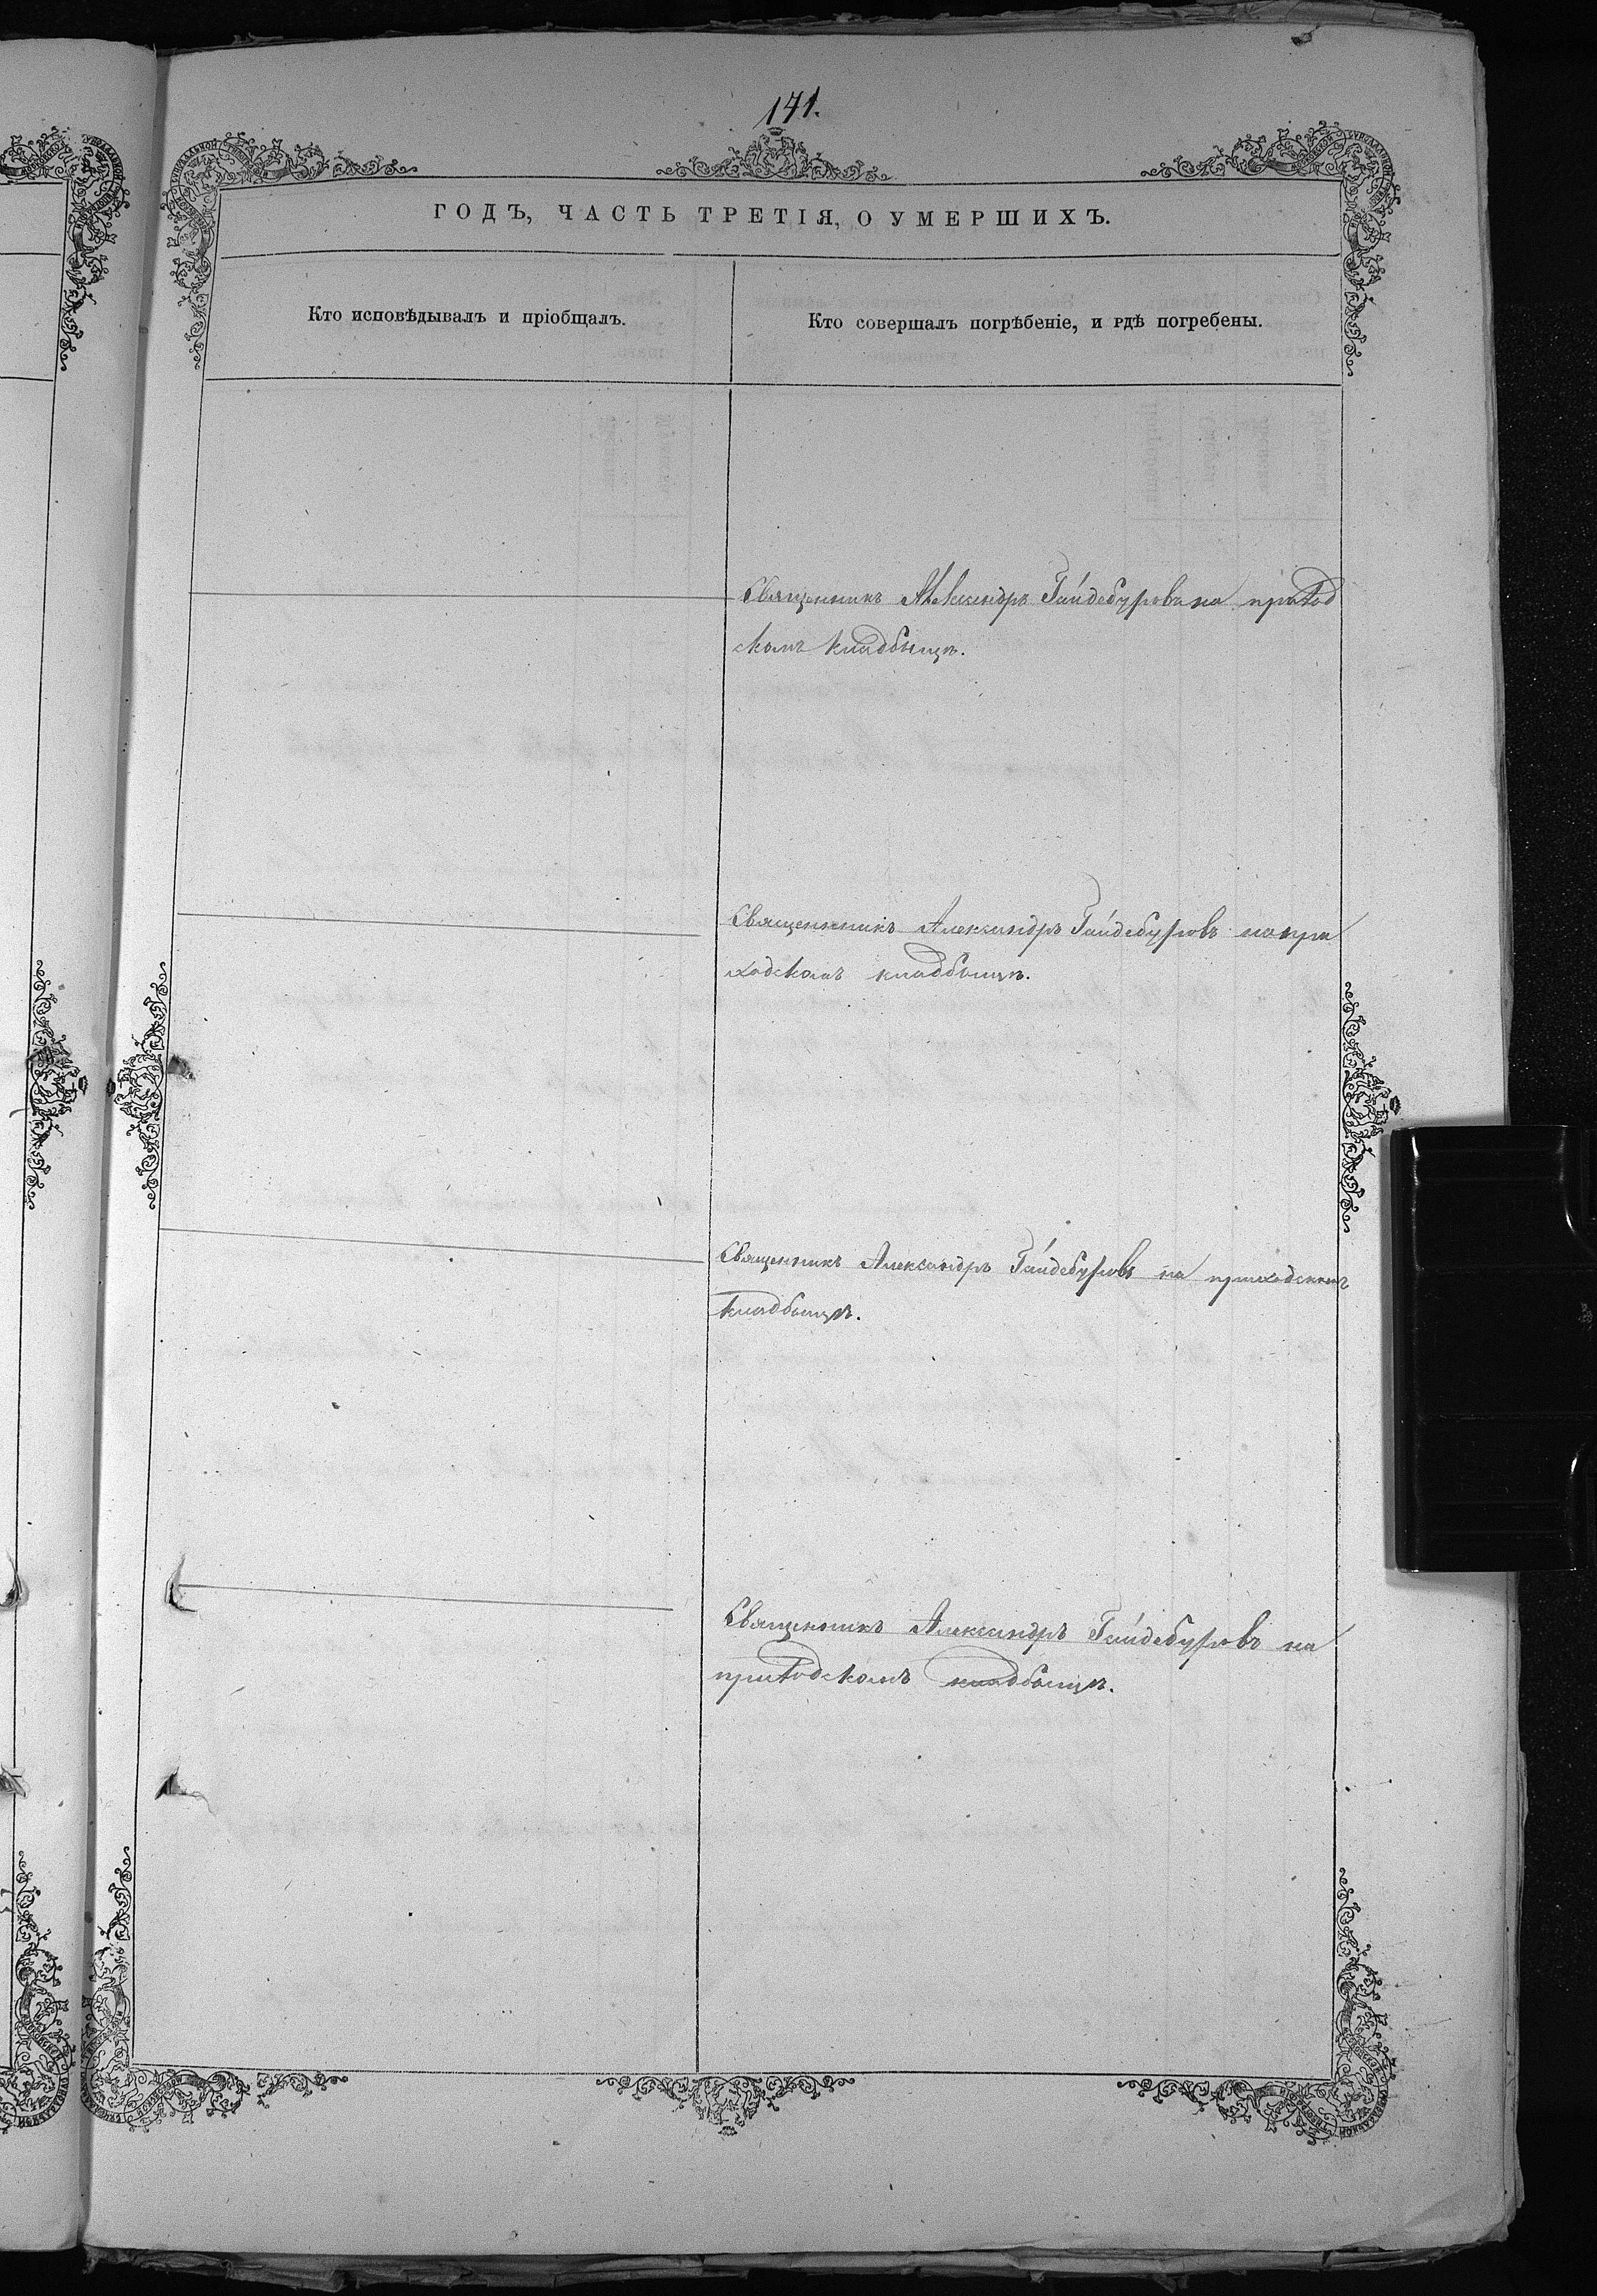 171.
ГОДЪ, ЧАСТЬ ТРЕТІЯ, О УМЕРШИХЪ.
Кто исповѣдывалъ и пріобщалъ.
Кто совершалъ погрѣбеніе, и гдѣ погребены.
Священникъ Александръ Гайдебуровъ на приход
скомъ кладбищѣ.
Священникъ Александръ Гайдебуровъ на при
ходскомъ кладбищѣ.
Священникъ Александръ Гайдебуровъ на приходскомъ
кладбищѣ.
Священникъ Александръ Гайдебуровъ на
приходскомъ кладбищѣ.